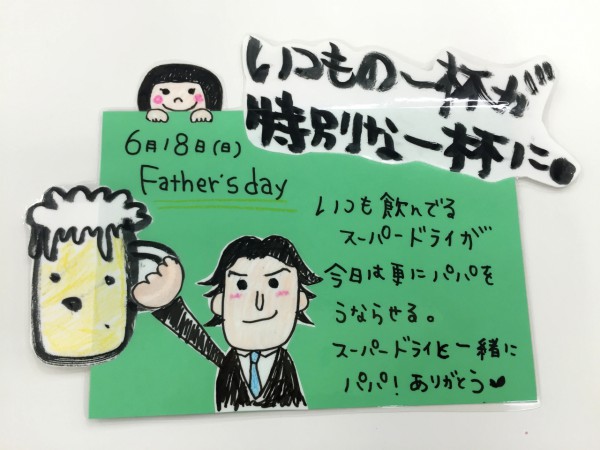 いつもの一杯が
特別な一杯に。
6月18日(日)
Father's day
いつも飲んでる
スーパードライが
今日は更にパパを
うならせる。
スーパードライと一緒に
パパ!ありがとう♥